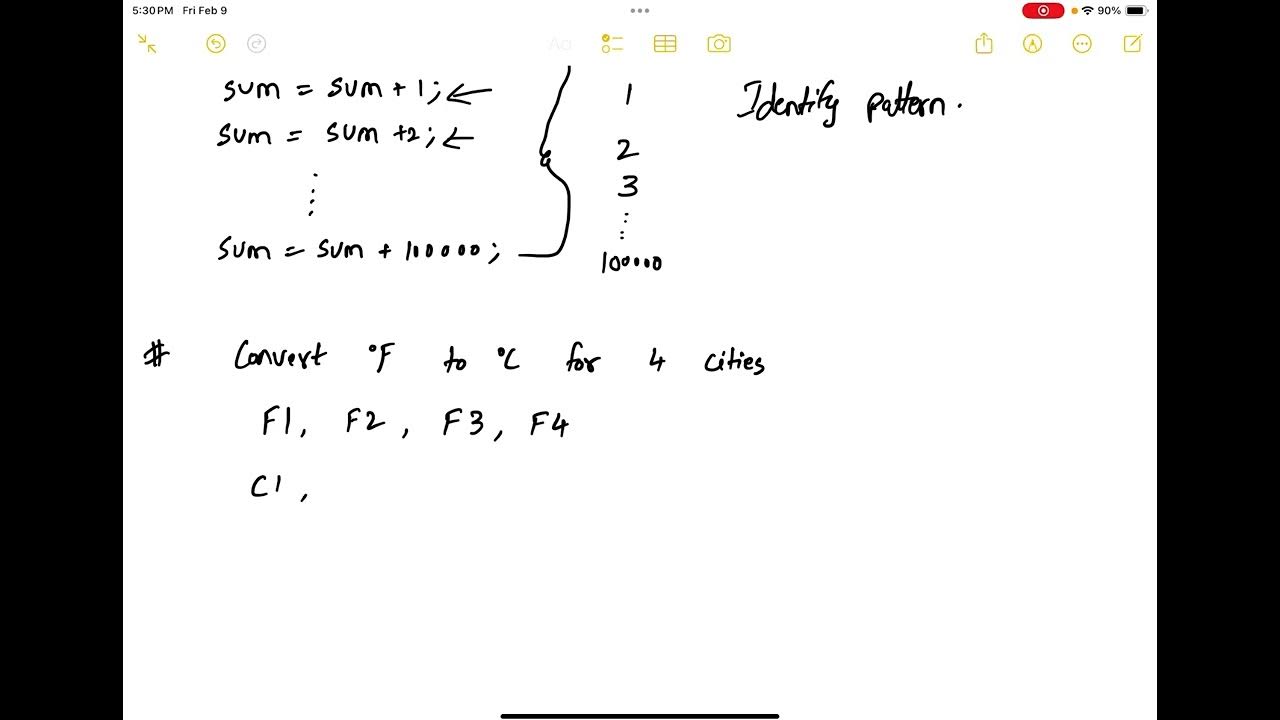 5:30 PM Fri Feb 9 90%
Aa
sum = sum + 1; 1 Identify pattern.
sum = sum +2; 2
3
sum = sum + 100000; 100000
# Convert °F to °C for 4 cities
F1, F2, F3, F4
C1,